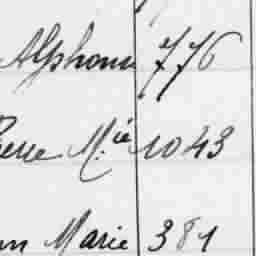 Alphons 776
Pierre M.ie 1043
Marie 381